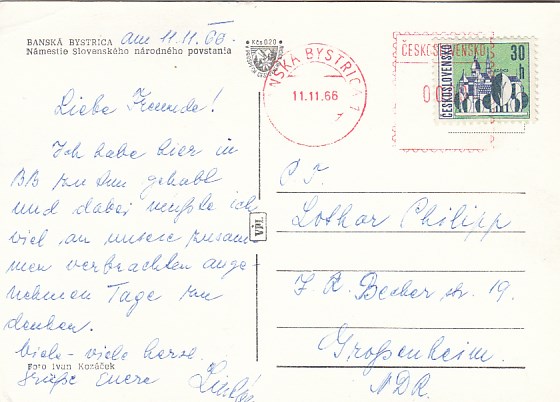 BANSKÁ BYSTRICA am 11.11.66.
Námestie Slovenského národného povstania
Kčs 0,20
BANSKÁ BYSTRICA 1
11.11.66
ČESKOSLOVENSKO
ČESKOSLOVENSKO
30 h
Liebe Freunde!
Ich habe hier in
BB zu tun gehabt
und dabei mußte ich
viel an unsere zusam
men verbrachten ange-
nehmen Tage zu
denken.
Viele - viele herzl.
Foto Ivan Kozáček
Grüße Euere
VPL
Lothar Philipp
J. R. Becher str. 19.
Großenheim
NDR.